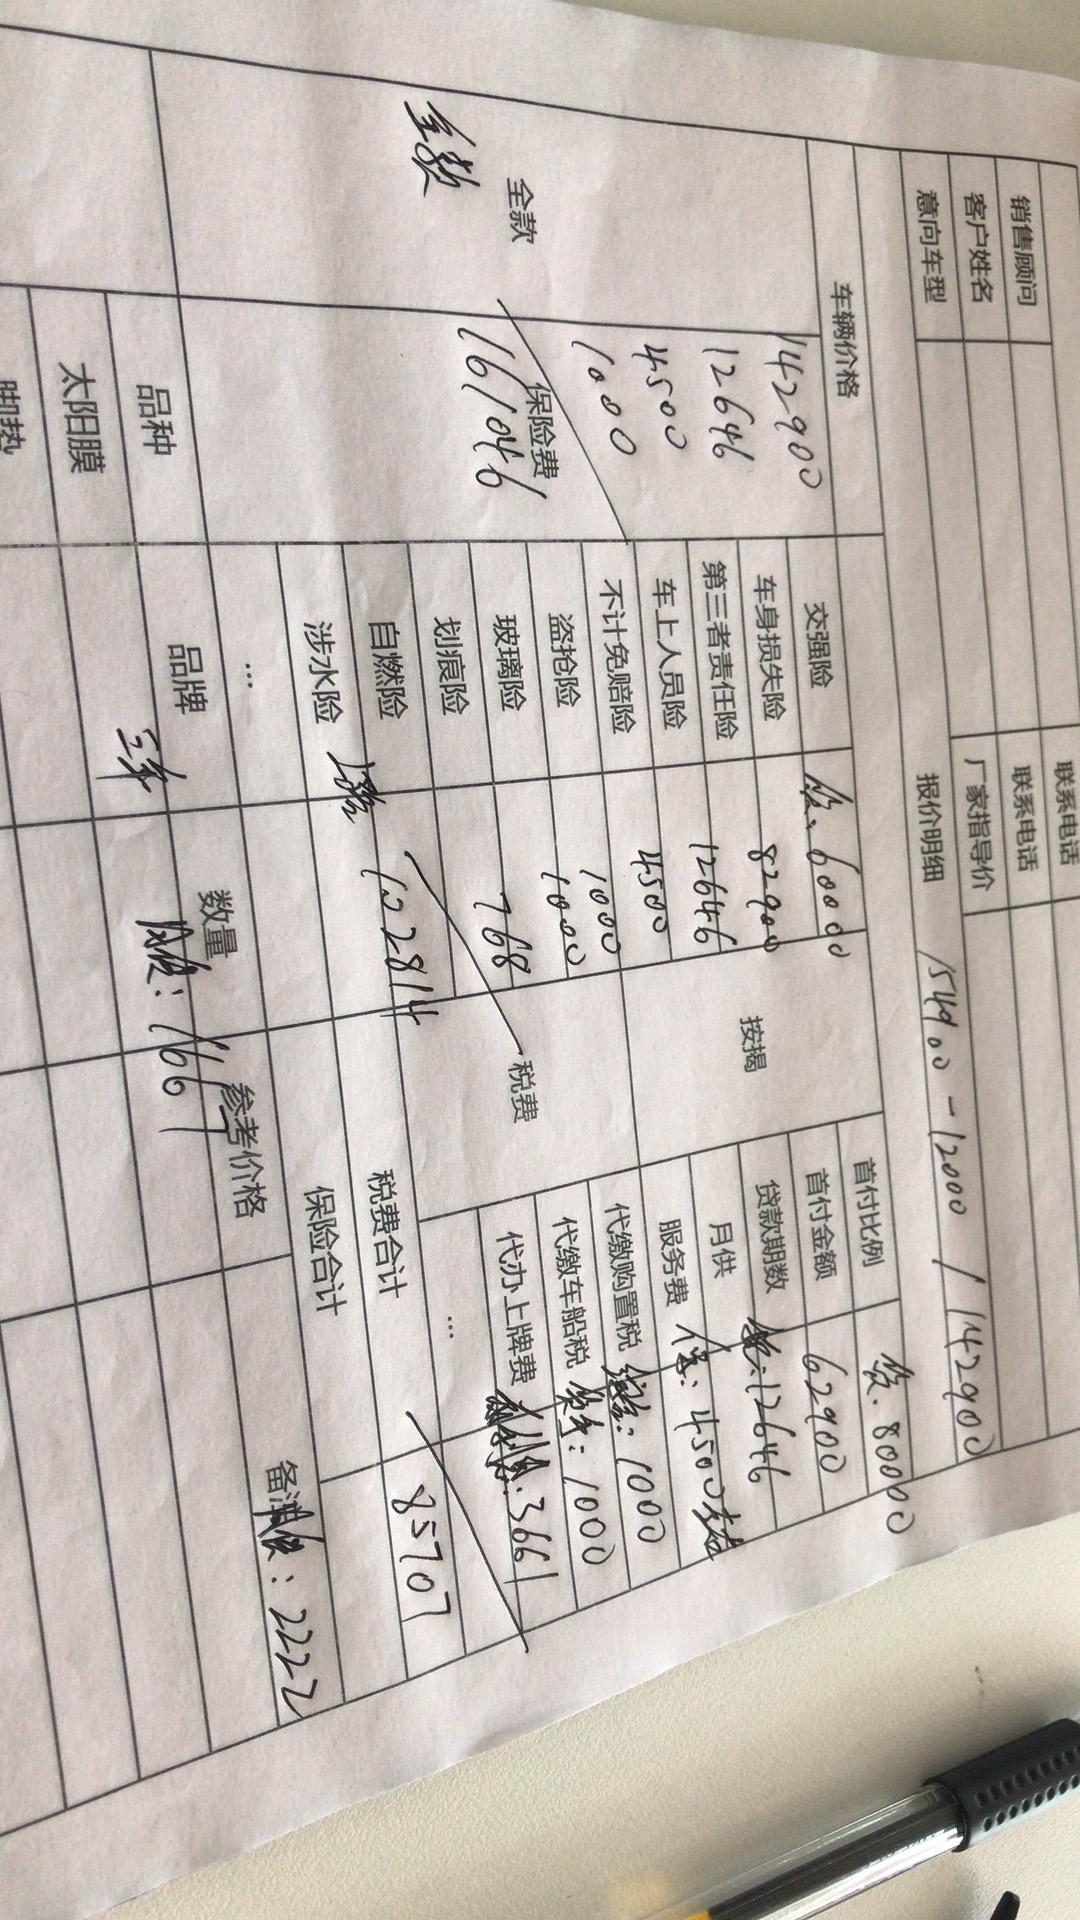 联系电话
销售顾问 联系电话
客户姓名 厂家指导价
意向车型 报价明细 154900-12000/142900
车辆价格 首付比例 贷.80000
142900 交强险 贷.60000 按揭 首付金额 62900
12646 车身损失险 82900 贷款期数 12646
4500 第三者责任险 12646 月供 保:4500
1000 车上人员险 4500 服务费
全款 保险费 不计免赔险 1000 税费 代缴购置税 1000
161046 盗抢险 1000 代缴车船税 1000
全款 玻璃险 768 代办上牌费 3661
划痕险 ...
自燃险 102814 税费合计 85707
涉水险 保险合计
...
品种 品牌 数量 参考价格 备注 2222
太阳膜 三年 月供:1667
脚垫